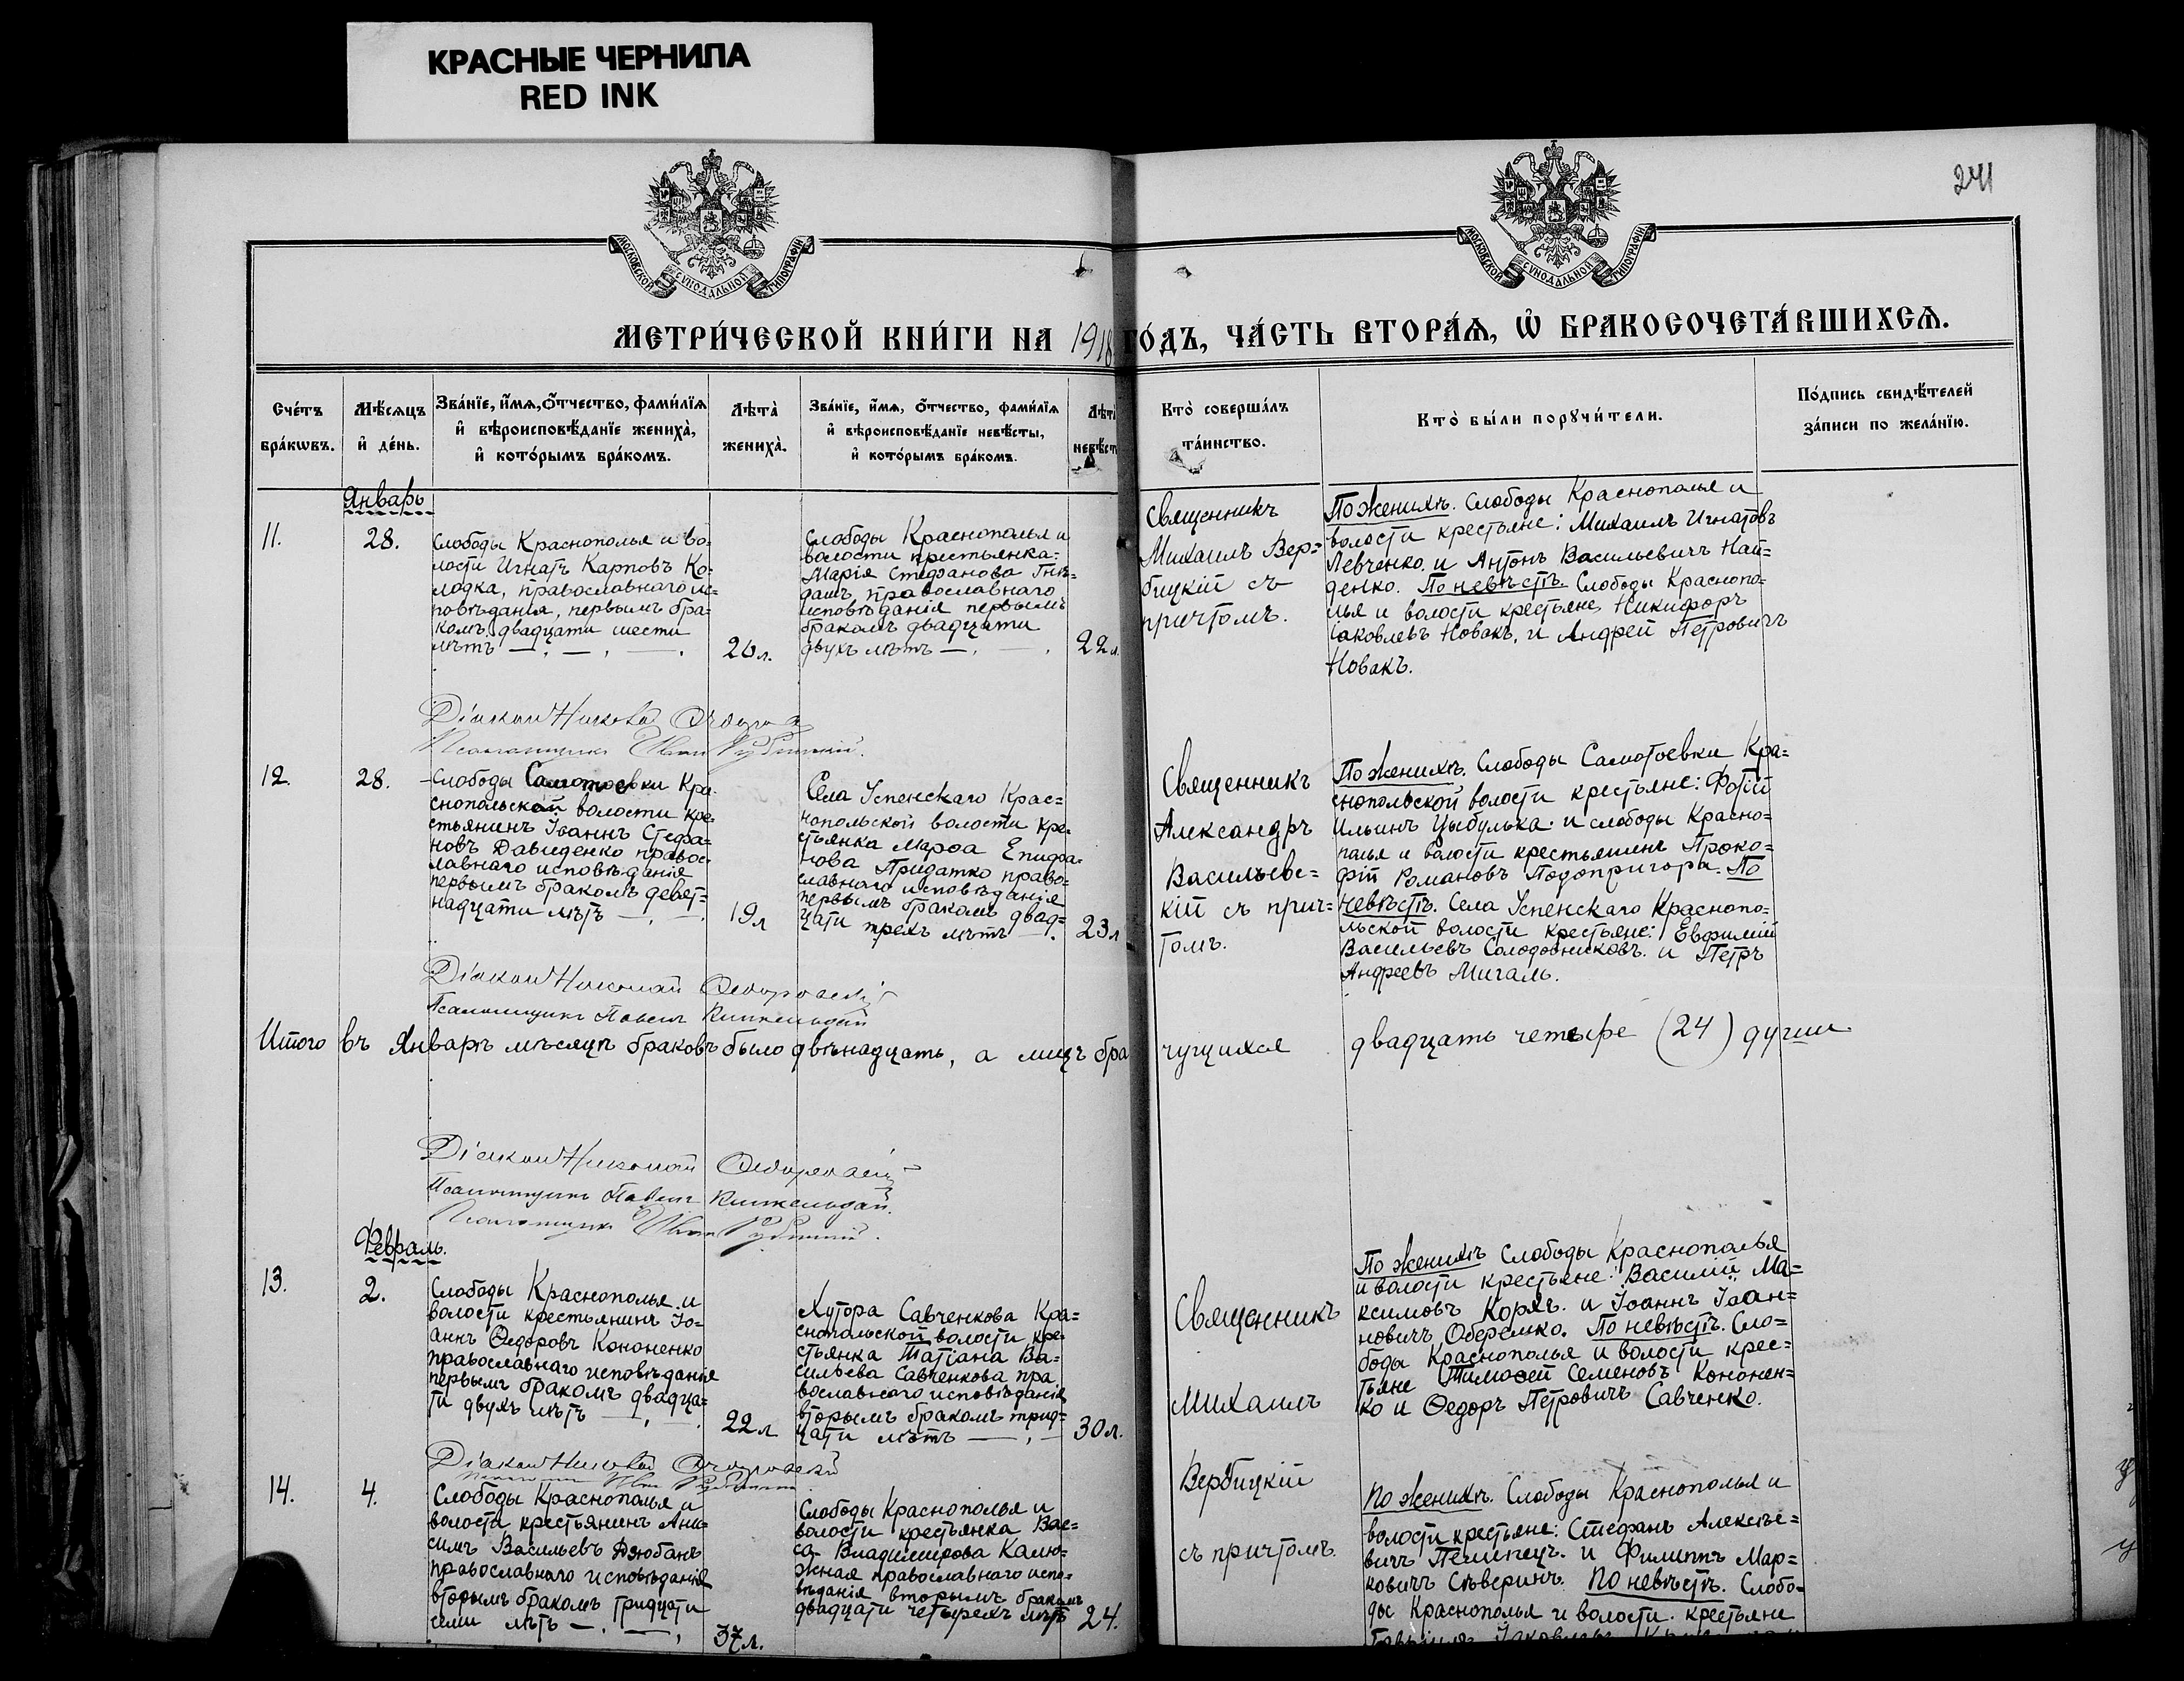 КРАСНЫЕ ЧЕРНИЛА
RED INK
241
МОСКОВСКОЙ СѴНОДАЛЬНОЙ ТИПОГРАФІИ
МОСКОВСКОЙ СѴНОДАЛЬНОЙ ТИПОГРАФІИ
МЕТРИ́ЧЕСКОЙ КНИ́ГИ НА 1918 ГО́ДЪ, ЧА́СТЬ ВТОРА́Ѧ, Ѿ БРАКОСОЧЕТА́ВШИХСѦ.
Сче́тъ
бра́кѡвъ.
Мѣ́сѧцъ
и҆ де́нь.
Зва́нїе, и҆́мѧ, ѻ҆́тчество, фами́лїѧ
и҆ вѣроисповѣ́данїе жениха̀,
и҆ кото́рымъ бра́комъ.
Лѣта̀
жениха̀.
Зва́нїе, и҆́мѧ, ѻ҆́тчество, фами́лїѧ
и҆ вѣроисповѣ́данїе невѣ́сты,
и҆ кото́рымъ бра́комъ.
Лѣта
невѣ́ст
Кто̀ соверша́лъ
та́инство.
Кто̀ бы́ли порꙋчи́тели.
По́дпись свидѣ́телей
за́писи по жела́нїю.
Январь
11.
28.
Слободы Краснополья и во-
лости Игнатъ Карповъ Ко-
лодка, православнаго ис-
повѣданія, первымъ бра-
комъ, двадцати шести
лѣтъ
26 л.
Слободы Краснополья и
волости крестьянка
Марія Стефанова Гнѣ-
дашъ, православнаго
исповѣданія первымъ
бракомъ двадцати
двухъ лѣтъ
22 л.
Священникъ
Михаилъ Вер=
бицкій съ
причтомъ.
По женихѣ. Слободы Краснополья и
волости крестьяне: Михаилъ Игнатовъ
Левченко и Антонъ Васильевичъ Най-
денко. По невѣстѣ. Слободы Краснопо-
лья и волости крестьяне Никифоръ
Іаковлевъ Новакъ, и Андрей Петровичъ
Новакъ.
Діаконъ Николай
Псаломщикъ Иванъ
12.
28.
Слободы Самотоевки Кра-
снопольской волости кре-
стьянинъ Іоаннъ Стефа-
новъ Давиденко правос-
лавнаго исповѣданія
первымъ бракомъ девят-
надцати лѣтъ
19 л
Села Успенскаго Крас=
нопольской волости кре-
стьянка Марѳа Епифа-
нова Придатко право-
славнаго исповѣданія
первымъ бракомъ двад-
цати трехъ лѣтъ
23 л
Священникъ
Александръ
Васильевс=
кій съ прич=
томъ.
По женихѣ. Слободы Самотоевки Кра=
снопольской волости крестьяне: Фотій
Ильинъ Цыбулька и слободы Красно=
полья и волости крестьянинъ Проко=
фій Романовъ Подопригора. По
невѣстѣ. Села Успенскаго Краснопо-
льской волости крестьяне: Евфимій
Васильевъ Солодовниковъ и Петръ
Андреевъ Мигаль.
Діаконъ Николай
Псаломщикъ Павелъ
Итого въ Январѣ мѣсяцѣ браковъ было двѣнадцать, а лицъ бра
чущихся двадцать четыре (24) души
Діаконъ Николай
Псаломщикъ Павелъ
Псаломщикъ Иванъ
Февраль.
13.
2.
Слободы Краснополья и
волости крестьянинъ Іо-
аннъ Ѳедоровъ Кононенко
православнаго исповѣданія
первымъ бракомъ двадца-
ти двухъ лѣтъ
22 л
Хутора Савченкова Кра=
снопольской волости кре-
стьянка Татіана Ва-
сильева Савченкова пра
вославнаго исповѣданія
вторымъ бракомъ трид=
цати лѣтъ
30 л.
Священникъ
Михаилъ
Вербицкій
съ причтомъ.
По женихѣ Слободы Краснополья
и волости крестьяне: Василій Ма=
ксимовъ Коряхъ и Іоаннъ Іоан=
новичъ Оберемко. По невѣстѣ. Сло=
боды Краснополья и волости крес=
тьяне Тимоѳей Семеновъ Кононен-
ко и Ѳедоръ Петровичъ Савченко.
Діаконъ Николай
14.
4.
Слободы Краснополья и
волости крестьянинъ Ани-
симъ Васильевъ Дзюбанъ
православнаго исповѣданія
вторымъ бракомъ тридцати
семи лѣтъ
37 л.
Слободы Краснополья и
волости крестьянка Вас=
са Владимирова Калю-
жная православнаго испо-
вѣданія вторымъ бракомъ
двадцати четырехъ лѣтъ
24.
По женихѣ. Слободы Краснополья и
волости крестьяне: Стефанъ Алексѣе=
вичъ и Филиппъ Мар=
ковичъ Сѣверинъ. По невѣстѣ. Слобо-
ды Краснополья и волости крестьяне